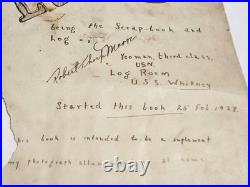 being the Scrap-book and
Log
Robert Moore
Yeoman, third class,
USN
Log Room
U.S.S. Whitney
Started this book 25 Feb 1928
his book is intended to be a suplement
my photograph album